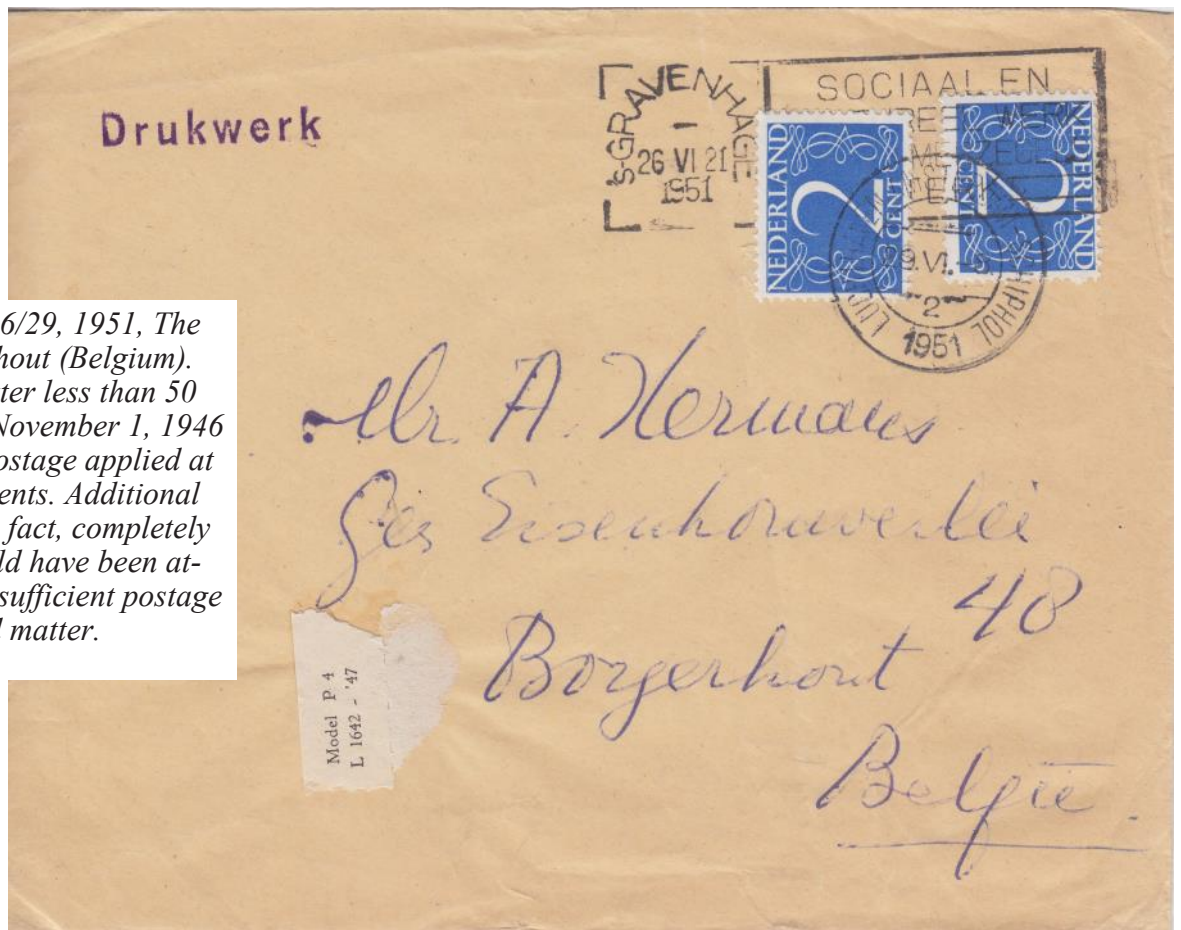 Drukwerk
'S-GRAVENHAGE
26 VI 21
1951
SOCIAAL EN
NEDERLAND
2
CENT
NEDERLAND
2
CENT
SCHIPHOL
29.VI.
2
1951
6/29, 1951, The
hout (Belgium).
ter less than 50
November 1, 1946
ostage applied at
ents. Additional
fact, completely
ld have been at-
sufficient postage
matter.
Mr. A. Hermans
Eisenhouwerlei
48
Borgerhout
België.
Model P 4
L 1642 - '47